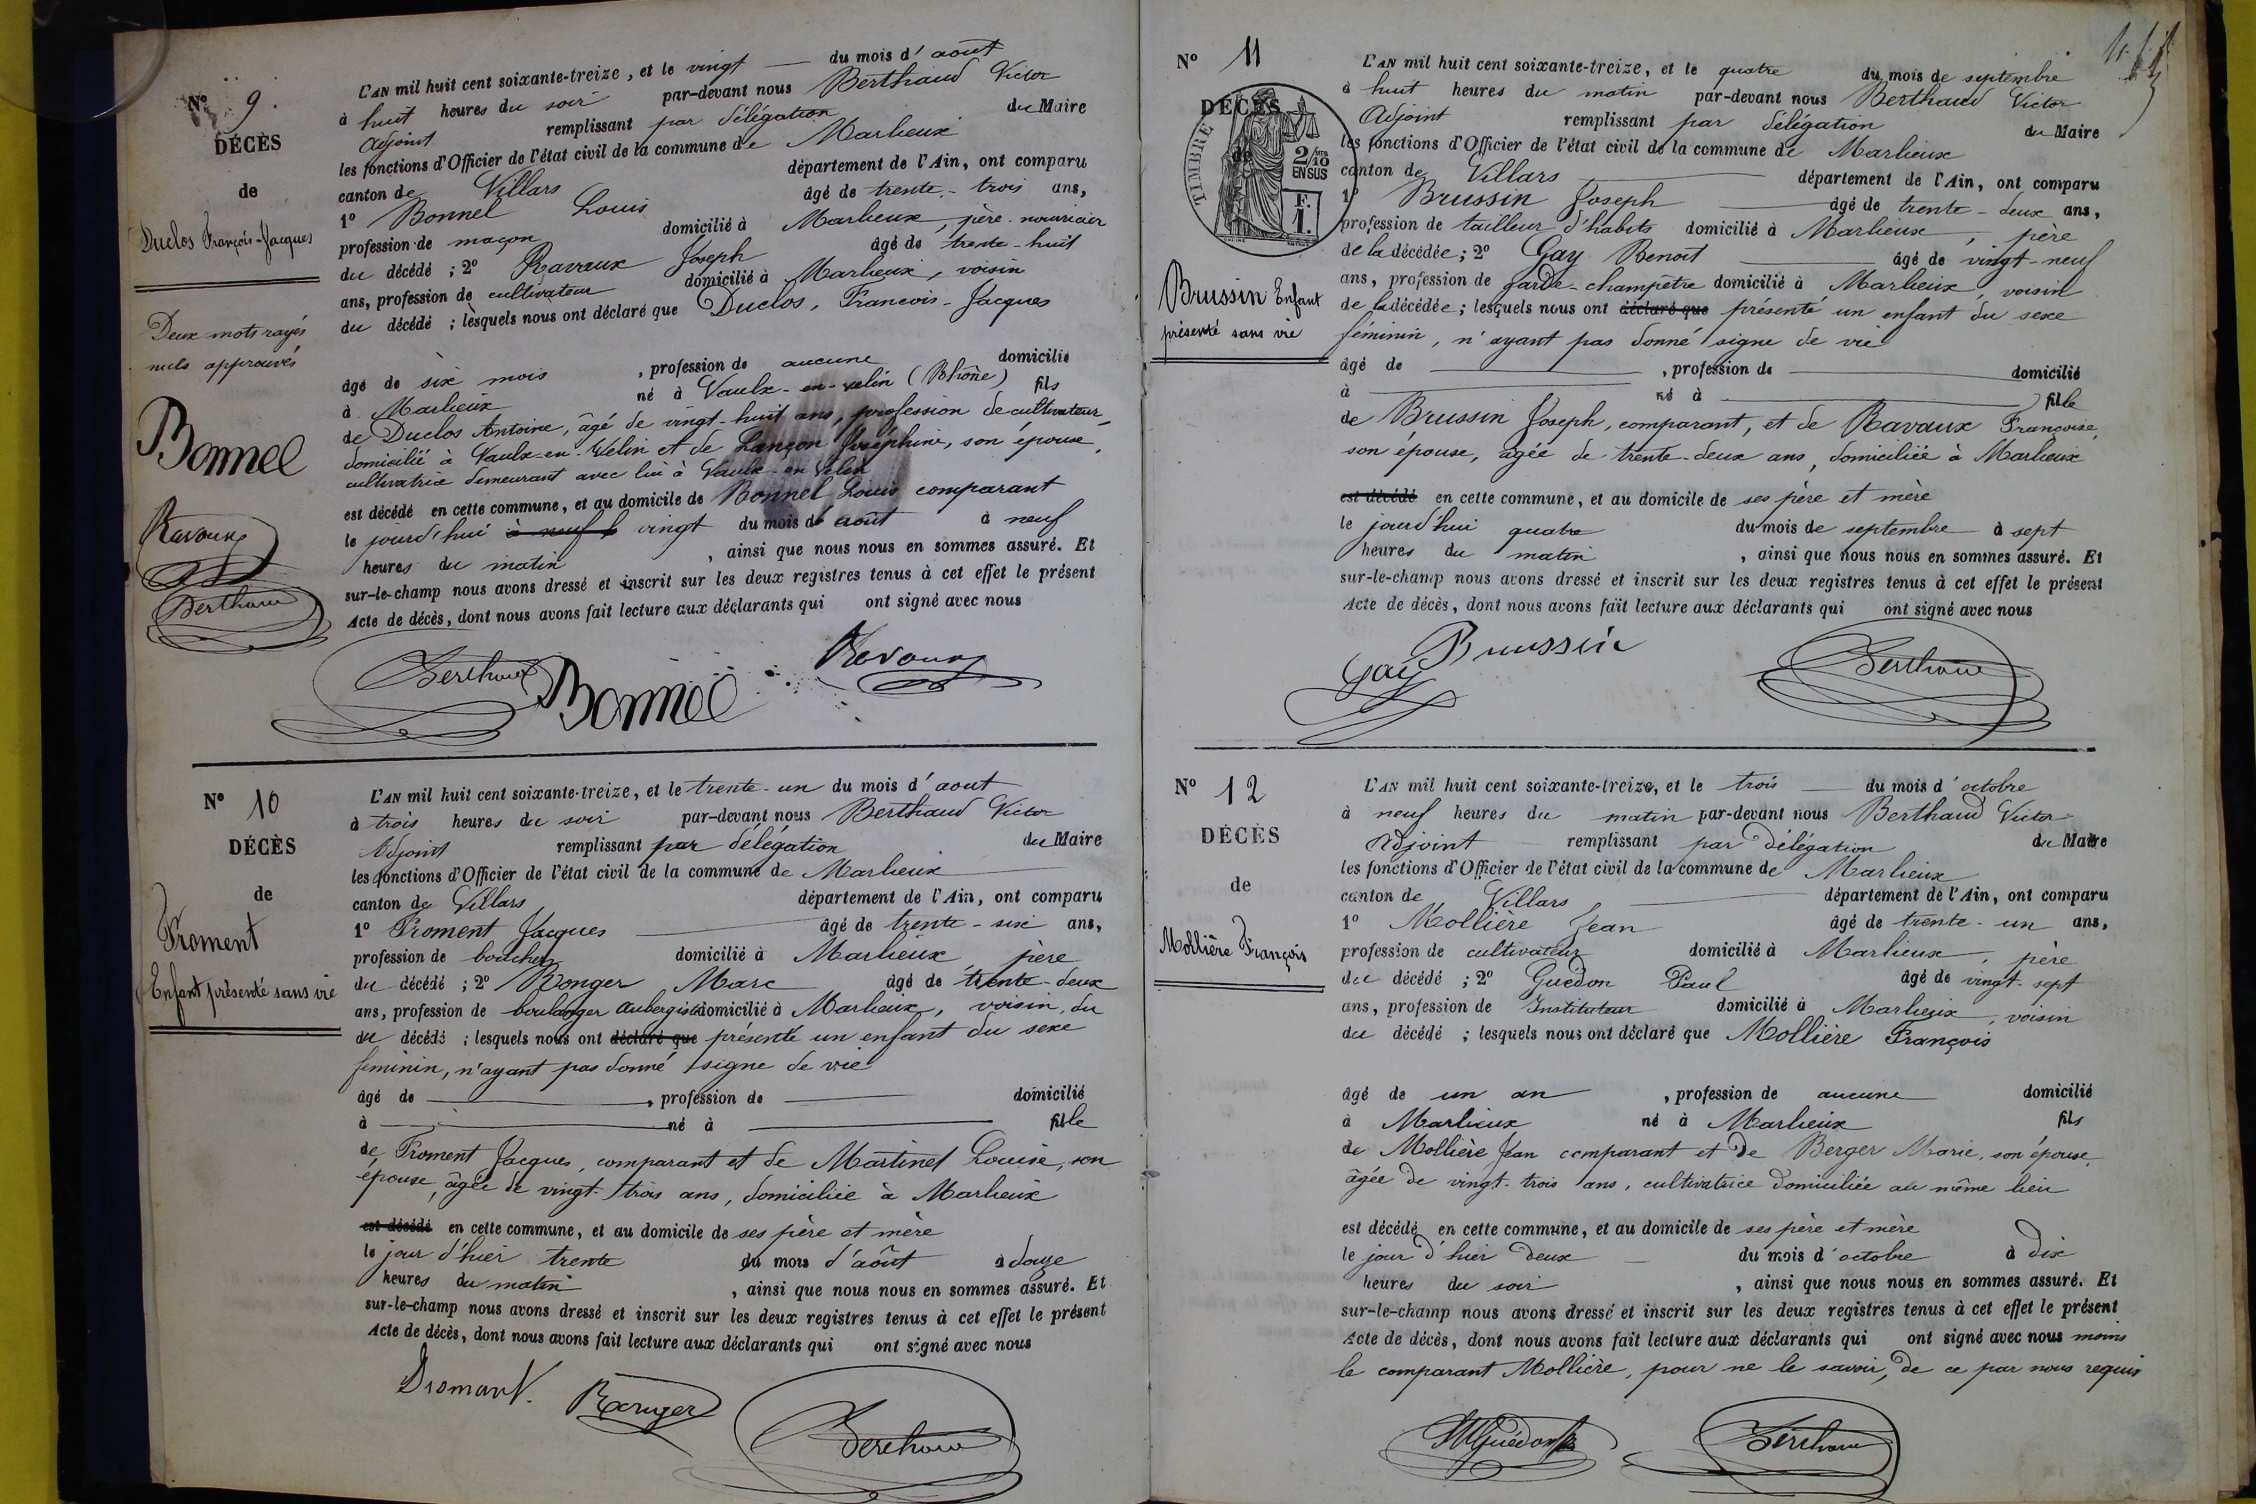 N° 9.
DÉCÈS
de
Duclos François-Jacques
Deux mots rayés
nuls approuvés
Bonnel
Ravoux
Berthaud
L'AN mil huit cent soixante-treize, et le vingt du mois d'août
à huit heures du soir par-devant nous Berthaud Victor
Adjoint remplissant par délégation du Maire
les fonctions d'Officier de l'état civil de la commune de Marlieux
canton de Villars département de l'Ain, ont comparu
1° Bonnel Louis âgé de trente-trois ans,
profession de maçon domicilié à Marlieux, père-nourricier
du décédé ; 2° Ravoux Joseph âgé de trente-huit
ans, profession de cultivateur domicilié à Marlieux, voisin
du décédé ; lesquels nous ont déclaré que Duclos, François-Jacques
âgé de six mois, profession de aucune domicilié
à Marlieux né à Vaulx-en-velin (Rhône) fils
de Duclos Antoine, âgé de vingt-huit ans, profession de cultivateur,
domicilié à Vaulx-en-Velin et de Lançon Joséphine, son épouse,
cultivatrice demeurant avec lui à Vaulx-en-Velin
est décédé en cette commune, et au domicile de Bonnel Louis comparant
le jourd'hui à neuf h vingt du mois de août à neuf
heures du matin, ainsi que nous nous en sommes assuré. Et
sur-le-champ nous avons dressé et inscrit sur les deux registres tenus à cet effet le présent
Acte de décès, dont nous avons fait lecture aux déclarants qui ont signé avec nous
Berthaud Bonnel Ravoux
N° 10
DÉCÈS
de
Froment
Enfant présenté sans vie
L'AN mil huit cent soixante-treize, et le trente-un du mois d'aout
à trois heures du soir par-devant nous Berthaud Victor
Adjoint remplissant par délégation du Maire
les fonctions d'Officier de l'état civil de la commune de Marlieux
canton de Villars département de l'Ain, ont comparu
1° Froment Jacques âgé de trente-six ans,
profession de boucher domicilié à Marlieux, père
du décédé ; 2° Ronger Marc âgé de trente-deux
ans, profession de boulanger aubergiste domicilié à Marlieux, voisin, du
du décédé ; lesquels nous ont déclaré que présenté un enfant du sexe
féminin, n'ayant pas donné signe de vie
âgé de , profession de domicilié
à né à fille
de Froment Jacques, comparant et de Martinet Louise, son
épouse, âgée de vingt-trois ans, domiciliée à Marlieux
est décédé en cette commune, et au domicile de ses père et mère
le jour d'hier trente du mois d'août à douze
heures du matin, ainsi que nous nous en sommes assuré. Et
sur-le-champ nous avons dressé et inscrit sur les deux registres tenus à cet effet le présent
Acte de décès, dont nous avons fait lecture aux déclarants qui ont signé avec nous
Ronger Berthaud
N° 11
DÉCÈS
de
TIMBRE
2/10
EN SUS
F.
1.
Brussin Enfant
présenté sans vie
L'AN mil huit cent soixante-treize, et le quatre du mois de septembre
à huit heures du matin par-devant nous Berthaud Victor
Adjoint remplissant par délégation du Maire
les fonctions d'Officier de l'état civil de la commune de Marlieux
canton de Villars département de l'Ain, ont comparu
1° Brussin Joseph âgé de trente-deux ans,
profession de tailleur d'habits domicilié à Marlieux, père
de la décédée ; 2° Gay Benoit âgé de vingt-neuf
ans, profession de garde-champêtre domicilié à Marlieux, voisin
de la décédée ; lesquels nous ont déclaré que présenté un enfant du sexe
féminin, n'ayant pas donné signe de vie
âgé de , profession de domicilié
à né à fille
de Brussin Joseph, comparant, et de Ravoux Françoise,
son épouse, agée de trente-deux ans, domiciliée à Marlieux
est décédé en cette commune, et au domicile de ses père et mère
le jourd'hui quatre du mois de septembre à sept
heures du matin, ainsi que nous nous en sommes assuré. Et
sur-le-champ nous avons dressé et inscrit sur les deux registres tenus à cet effet le présent
Acte de décès, dont nous avons fait lecture aux déclarants qui ont signé avec nous
Gay Brussin Berthaud
N° 12
DÉCÈS
de
Mollière François
L'AN mil huit cent soixante-treize, et le trois du mois d'octobre
à neuf heures du matin par-devant nous Berthaud Victor
Adjoint remplissant par délégation du Maire
les fonctions d'Officier de l'état civil de la commune de Marlieux
canton de Villars département de l'Ain, ont comparu
1° Mollière Jean âgé de trente-un ans,
profession de cultivateur domicilié à Marlieux, père
du décédé ; 2° Guédon Paul âgé de vingt-sept
ans, profession de Instituteur domicilié à Marlieux, voisin
du décédé ; lesquels nous ont déclaré que Mollière François
âgé de un an, profession de aucune domicilié
à Marlieux né à Marlieux fils
de Mollière Jean comparant et de Berger Marie, son épouse,
âgée de vingt-trois ans, cultivatrice domiciliée au même lieu
est décédé en cette commune, et au domicile de ses père et mère
le jour d'hier deux du mois d'octobre à dix
heures du soir, ainsi que nous nous en sommes assuré. Et
sur-le-champ nous avons dressé et inscrit sur les deux registres tenus à cet effet le présent
Acte de décès, dont nous avons fait lecture aux déclarants qui ont signé avec nous moins
le comparant Mollière, pour ne le savoir, de ce par nous requis
Guédon Berthaud